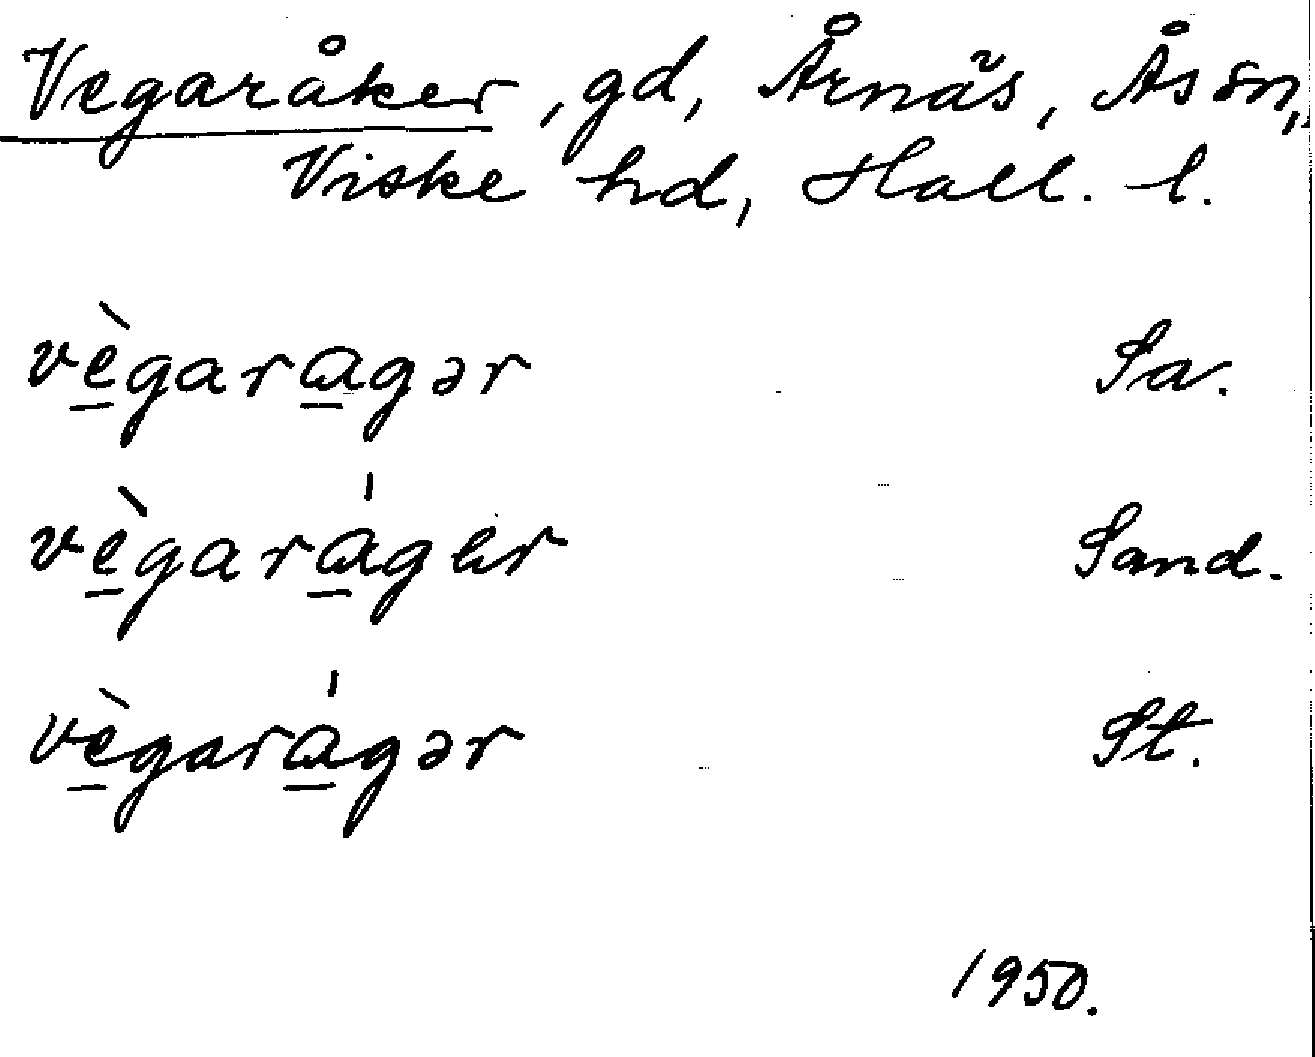 Vegaråker, gd, Årnäs, Ås sn,
Viske hd, Hall. l.
vè̱garɑ̱gər Sa.
vè̱garɑ̱́gər Sand.
vè̱garɑ̱́gər St.
1950.